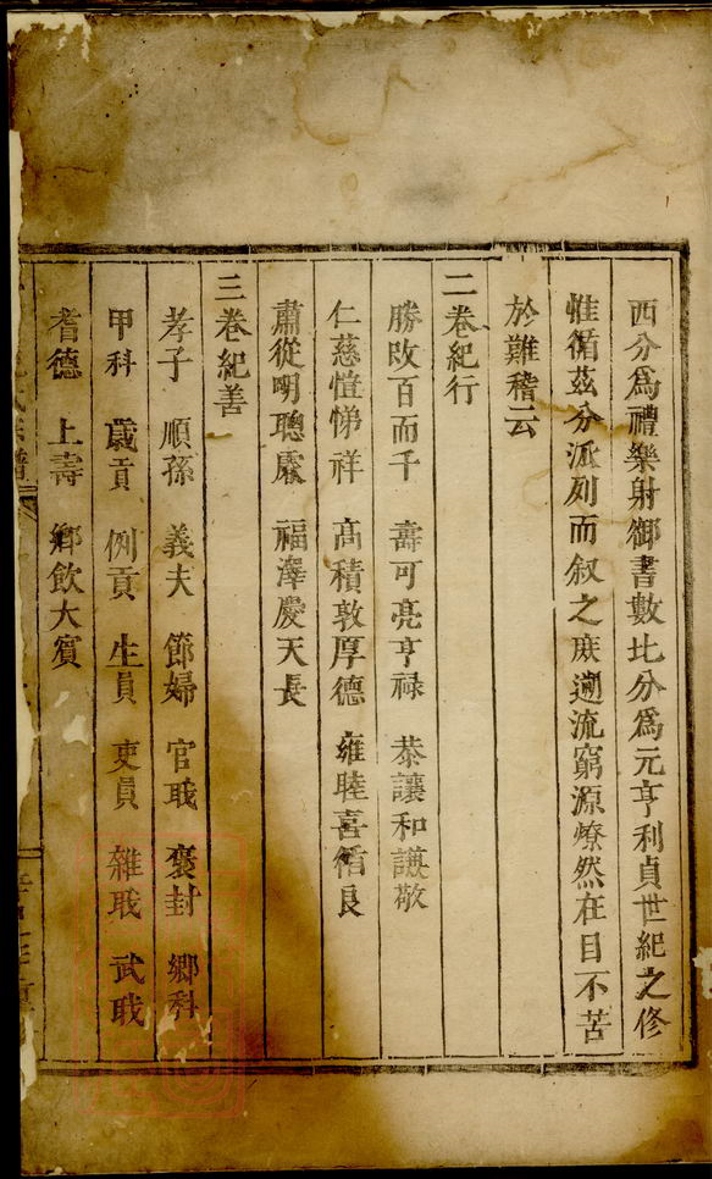 西分爲禮樂射御書數比分爲元亨利貞世紀之修
惟循茲分派列而叙之庶遡流窮源燎然在目不苦
於難稽云
二卷紀行
勝敗百而千 壽可亮亨祿 恭讓和謙敬
仁慈愷悌祥 高積敦厚德 雍睦喜循良
肅從明聰 福澤慶天長
三卷紀善
孝子 順孫 義夫 節婦 官職 褒封 鄉科
甲科 歲貢 例貢 生員 吏員 雜職 武職
耆德 上壽 鄉飲大賓
氏宗譜